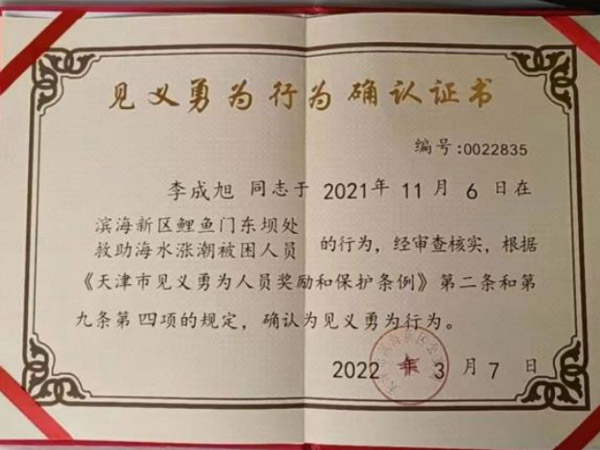 见义勇为行为确认证书
编号:0022835
李成旭 同志于 2021年 11月 6日在
滨海新区鲤鱼门东坝处
救助海水涨潮被困人员 的行为，经审查核实，根据
《天津市见义勇为人员奖励和保护条例》第二条和第
九条第四项的规定，确认为见义勇为行为。
2022 年 3月 7日